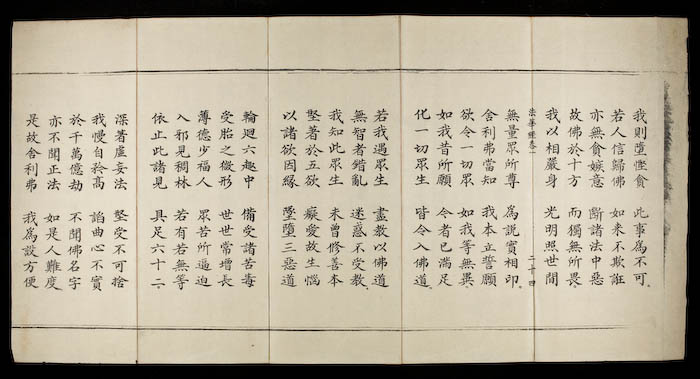 我則墮慳貪　此事為不可
若人信歸佛　如來不欺誑
亦無貪嫉意　斷諸法中惡
故佛於十方　而獨無所畏
我以相嚴身　光明照世間
法華經卷一　二十四
無量眾所尊　為說實相印
舍利弗當知　我本立誓願
欲令一切眾　如我等無異
如我昔所願　今者已滿足
化一切眾生　皆令入佛道
若我遇眾生　盡教以佛道
無智者錯亂　迷惑不受教
我知此眾生　未曾修善本
堅著於五欲　癡愛故生惱
以諸欲因緣　墜墮三惡道
輪迴六趣中　備受諸苦毒
受胎之微形　世世常增長
薄德少福人　眾苦所逼迫
入邪見稠林　若有若無等
依止此諸見　具足六十二
深著虛妄法　堅受不可捨
我慢自矜高　諂曲心不實
於千萬億劫　不聞佛名字
亦不聞正法　如是人難度
是故舍利弗　我為設方便